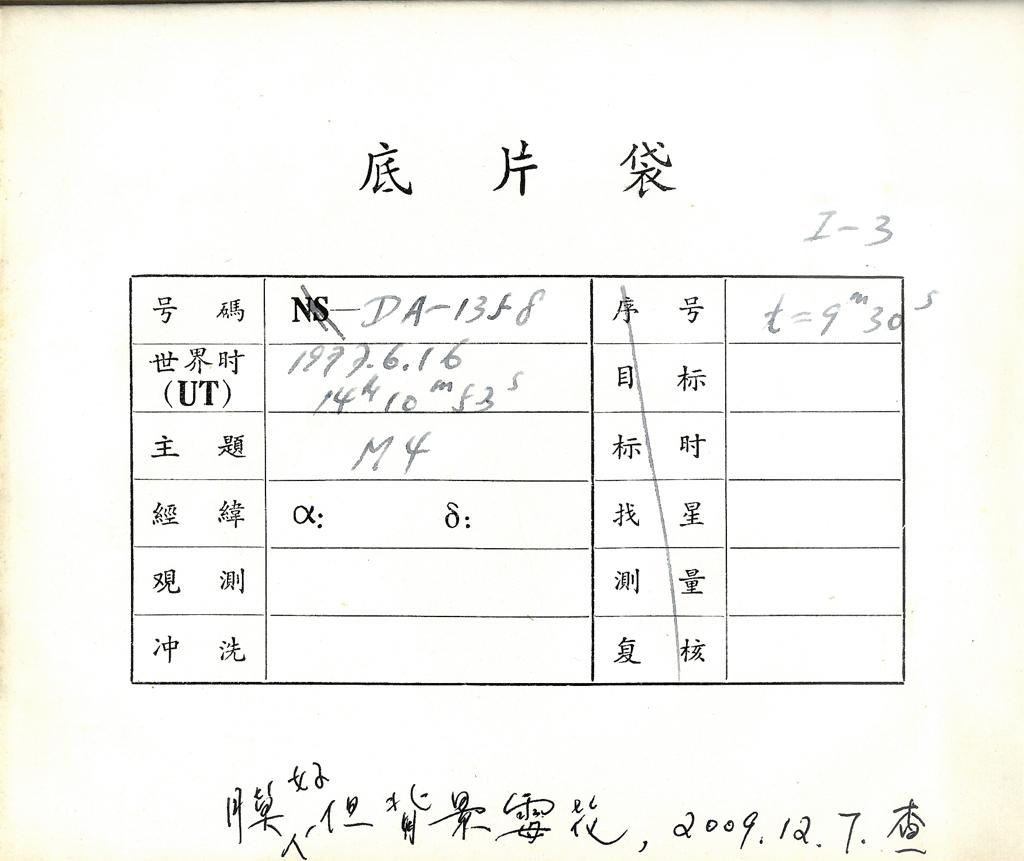 底 片 袋
I-3
号 碼 NS-DA-1358 序 号 t=9m30s
世界时 1977.6.16 目 标
(UT) 14h10m53s
主 題 M4 标 时
經 緯 α: δ: 找 星
观 測 測 量
冲 洗 复 核
膜好但背景霉花, 2009.12.7.查